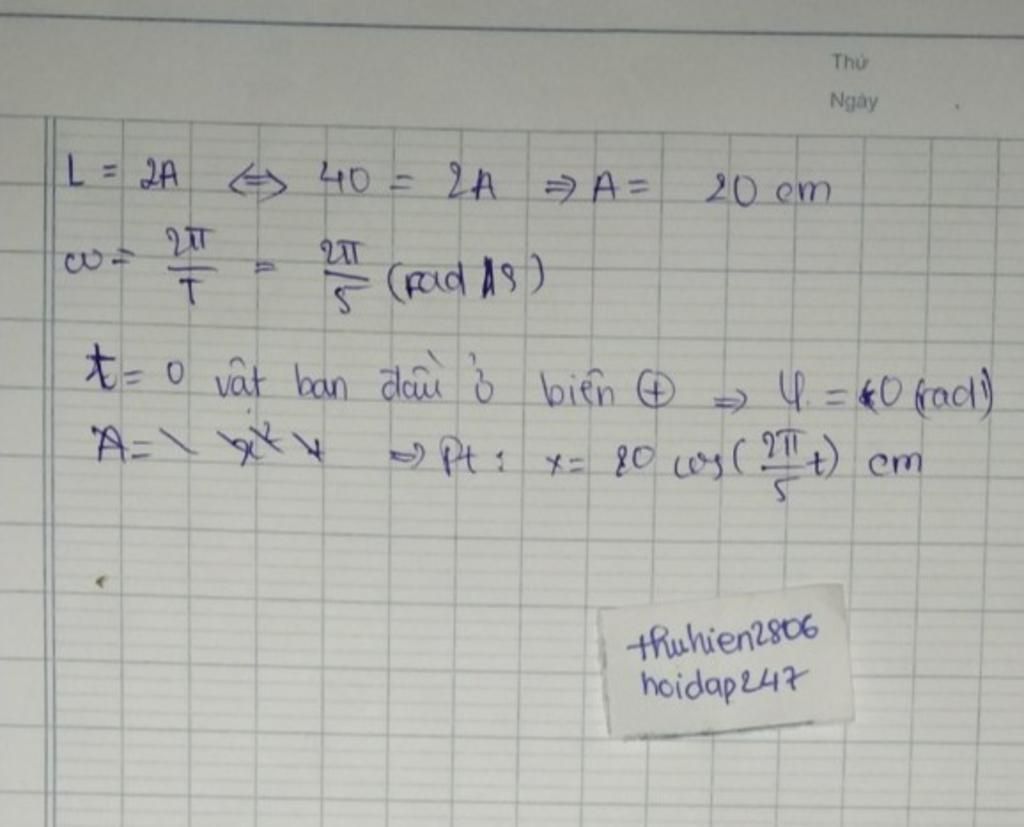 Thứ
Ngày
L = 2A ⇔ 40 = 2A ⇒ A = 20 cm
ω = 2π/T = 2π/5 (rad/s)
t = 0 vật ban đầu ở biên ⊕ ⇒ φ = 0 (rad)
⇒ Pt : x = 20 cos(2π/5 t) cm
thuhien2806
hoidap247